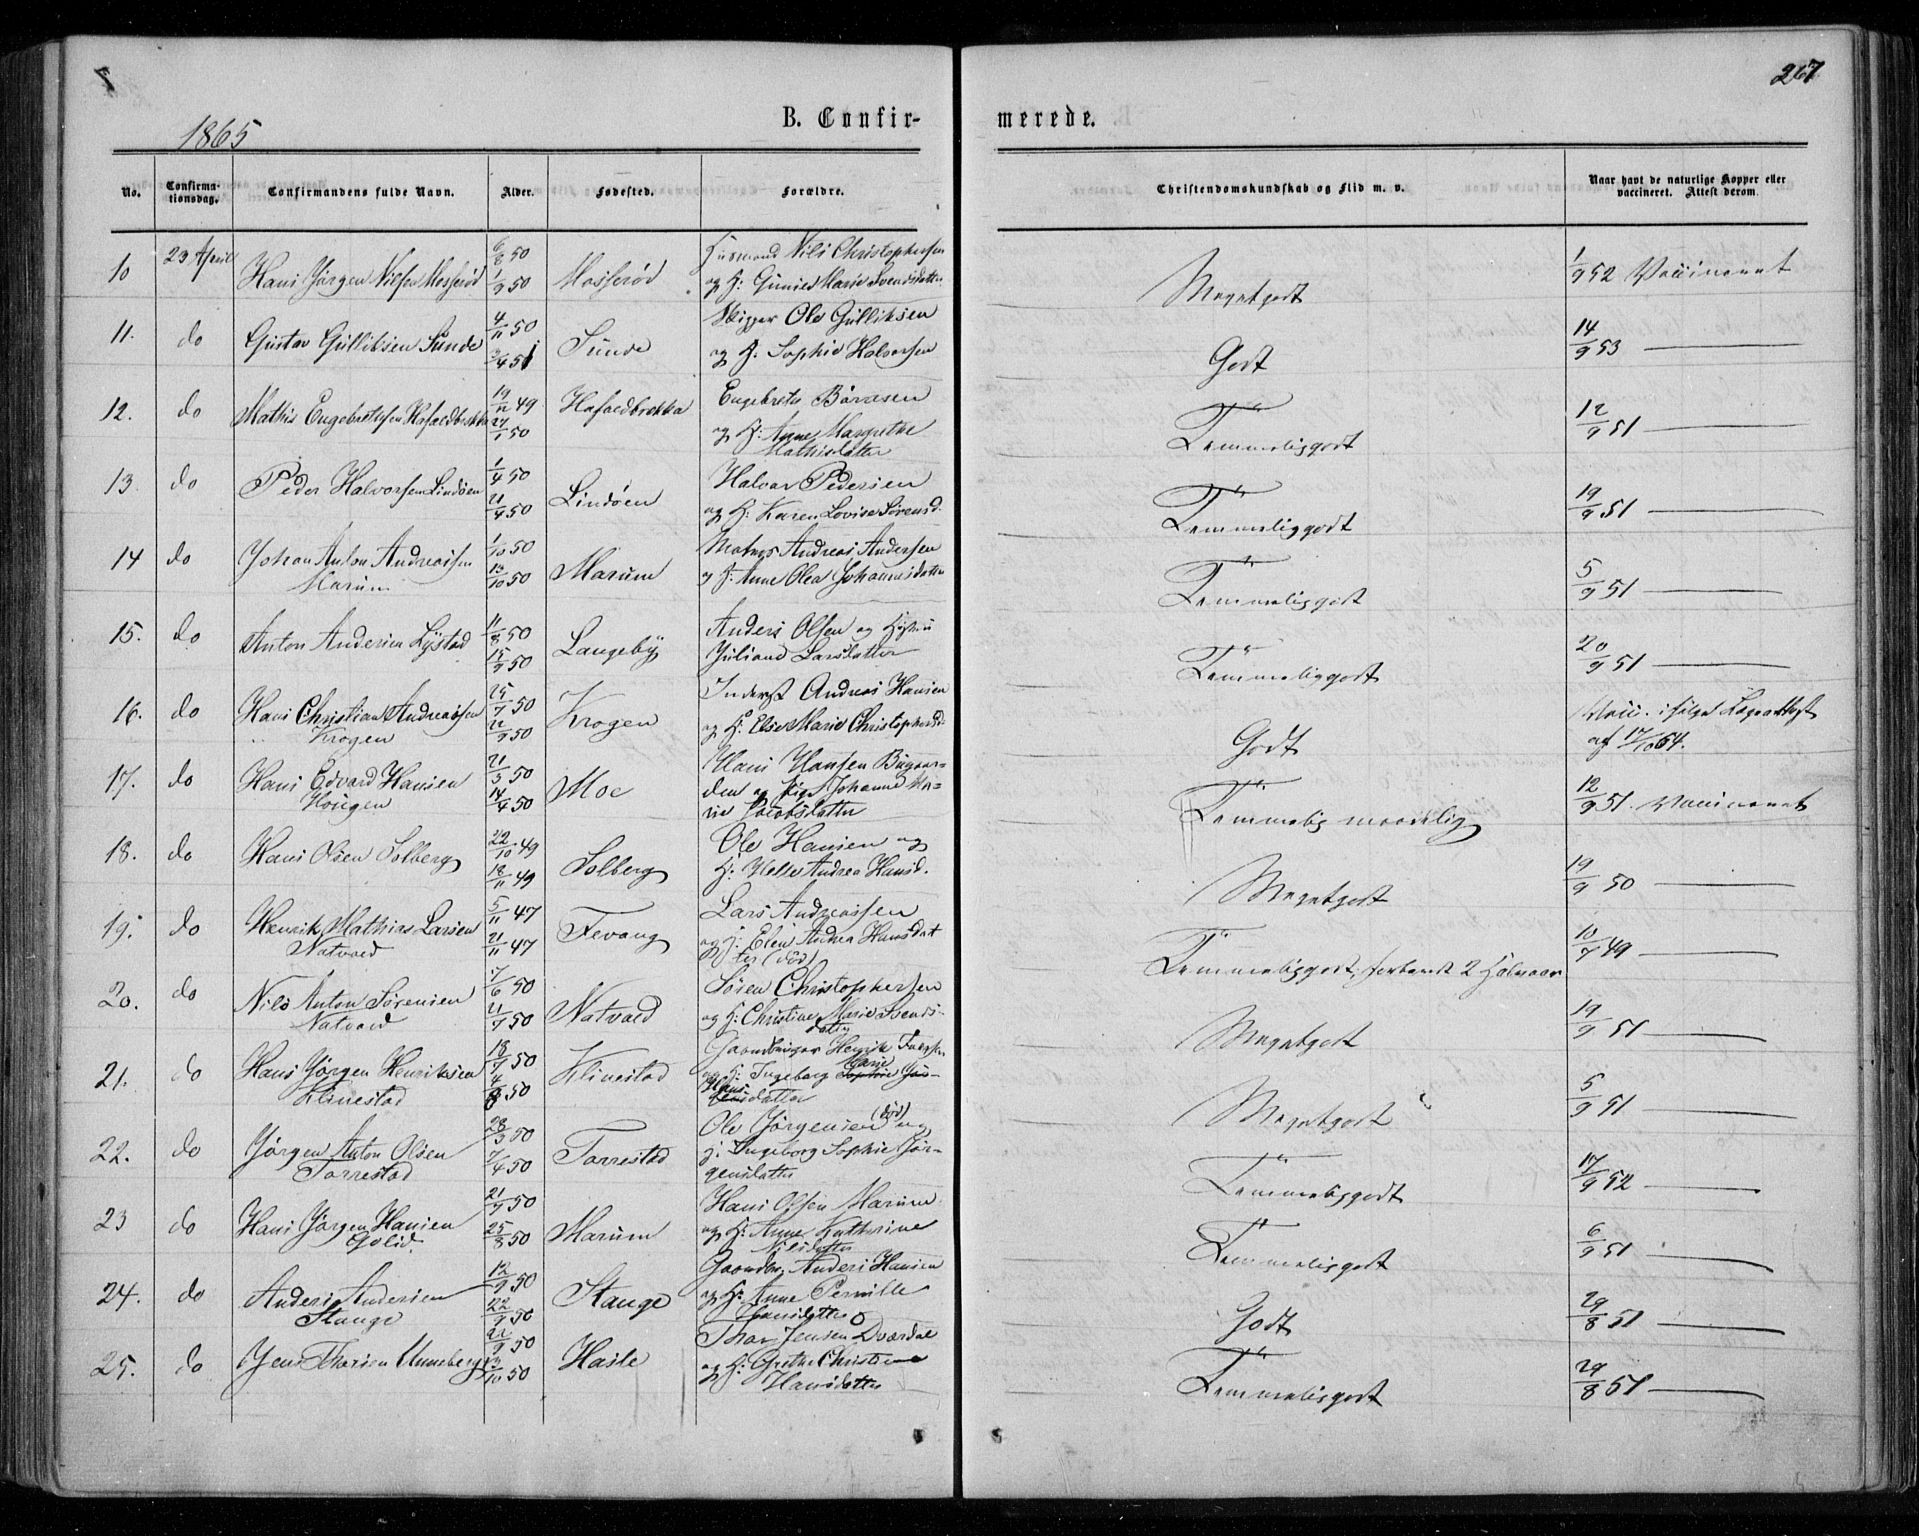 267
1865
B. Confir-
merede.
No.
Confirma-
tionsdag.
Confirmandens fulde Navn.
Alder.
Fødested.
Forældre.
Christendomskundskab og Flid m. v.
Naar havt de naturlige Kopper eller
vaccineret. Attest derom.
10 23 April Hans Jørgen Nilsen Mosserød 6/8 50 1/9 50 Mosserød Husmand Nils Christophersen
og H: Gunild Marie Svendsdatter Megetgodt 1/9 52 Vaccineret
11. do Gustav Gulliksen Sunde 4/11 50 3/4 51 Sunde Skipper Ole Gulliksen
og H. Sophie Halvorsen Godt 14/9 53
12. do Mathis Engebretsen Hafaldbrekka 19/12 49 27/1 50 Hafaldbrekka Engebrets Børresen
og H: Anne Margrethe
Mathisdatter Temmeliggodt 12/9 51
13. do Peder Halvorsen Lindøen 1/4 50 21/4 50 Lindøen Halvor Pedersen
og H: Karen Lovise Sørensd. Temmeliggodt 19/9 51
14 do Johan Anton Andreassen
Marum 1/10 50 13/10 50 Marum Matros Andreas Andersen
og H. Anne Olea Johannesdatter Temmeliggodt 5/9 51
15. do Anton Andersen Lystad 11/8 50 15/9 50 Langeby Anders Olsen og Hustru
Juliane Larsdatter Temmeliggodt 20/9 51
16. do Hans Christian Andreassen
Krogen 25/7 50 22/9 50 Krogen Inderst Andreas Hansen
og H: Else Marie Christophersd. Godt Vacc. ifølge Lægeattest
af 17/10 64.
17. do Hans Edvard Hansen
Hougen 21/3 50 14/4 50 Moe Hans Hansen Bugaar-
den og Pige Johanne Ma-
rie Jacobsdatter Temmelig maadelig 12/9 51. Vaccineret
18. do Hans Olsen Solberg 22/10 49 18/11 49 Solberg Ole Hansen og
H: Helle Andrea Hansd. Megetgodt 19/9 50
19. do Henrik Mathias Larsen
Natvaed 5/11 47 21/11 47 Fevang Lars Andreassen
og H: Elen Andrea Hansdat
ter (død) Temmeliggodt, forberedt 2 Halvaar 10/7 49
20. do Nils Anton Sørensen
Natvaed 7/6 50 21/7 50 Natvaed Søren Christophersen
og H: Christine Marie Svends-
datter Megetgodt 19/9 51
21. do Hans Jørgen Henriksen
Klinestad 18/7 50 4/8 50 Klinestad Gaardbruger Henrik Iversen
og H: Ingeborg Marie
Hansdatter Megetgodt 5/9 51
22. do Jørgen Anton Olsen
Torrestad 28/3 50 7/4 50 Torrestad Ole Jørgensen (død) og
H: Ingeborg Sophie Jør-
gensdatter Temmeliggodt 17/9 52
23 do Hans Jørgen Hansen
Golid. 21/7 50 25/8 50 Marum Hans Olsen Marum
og H: Anne Kathrine
Nilsdatter Temmeliggodt 6/9 51
24. do Anders Andersen
Stange 12/9 50 22/9 50 Stange Gaardbr. Anders Hansen
og H: Anne Pernille
Hansdatter Godt 29/8 51
25. do Jens Thorsen Unneberg 22/9 50 13/10 50 Hasle Thor Jensen Dverdal
og H: Grethe Christine
Hansdatter Temmeliggodt 29/8 51